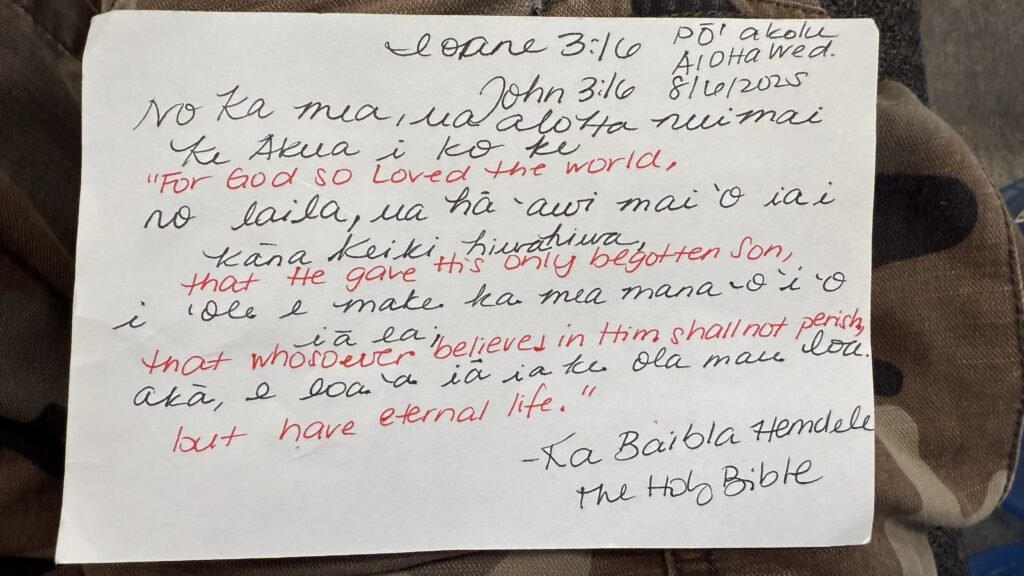 Ioane 3:16
Pō'akolu
Aloha Wed.
John 3:16
8/6/2025
No Ka mea, ua aloha nui mai
Ke Akua i ko ke
"For God so Loved the world,
no laila, ua hā'awi mai 'o ia i
kāna Keiki hiwahiwa,
that He gave His only begotten Son,
i 'ole e make ka mea mana'o'i'o
iā ia,
that whosoever believes in Him shall not perish,
akā, e loa'a iā ia ke ola mau loa.
but have eternal life."
-Ka Baibla Hemolele
The Holy Bible